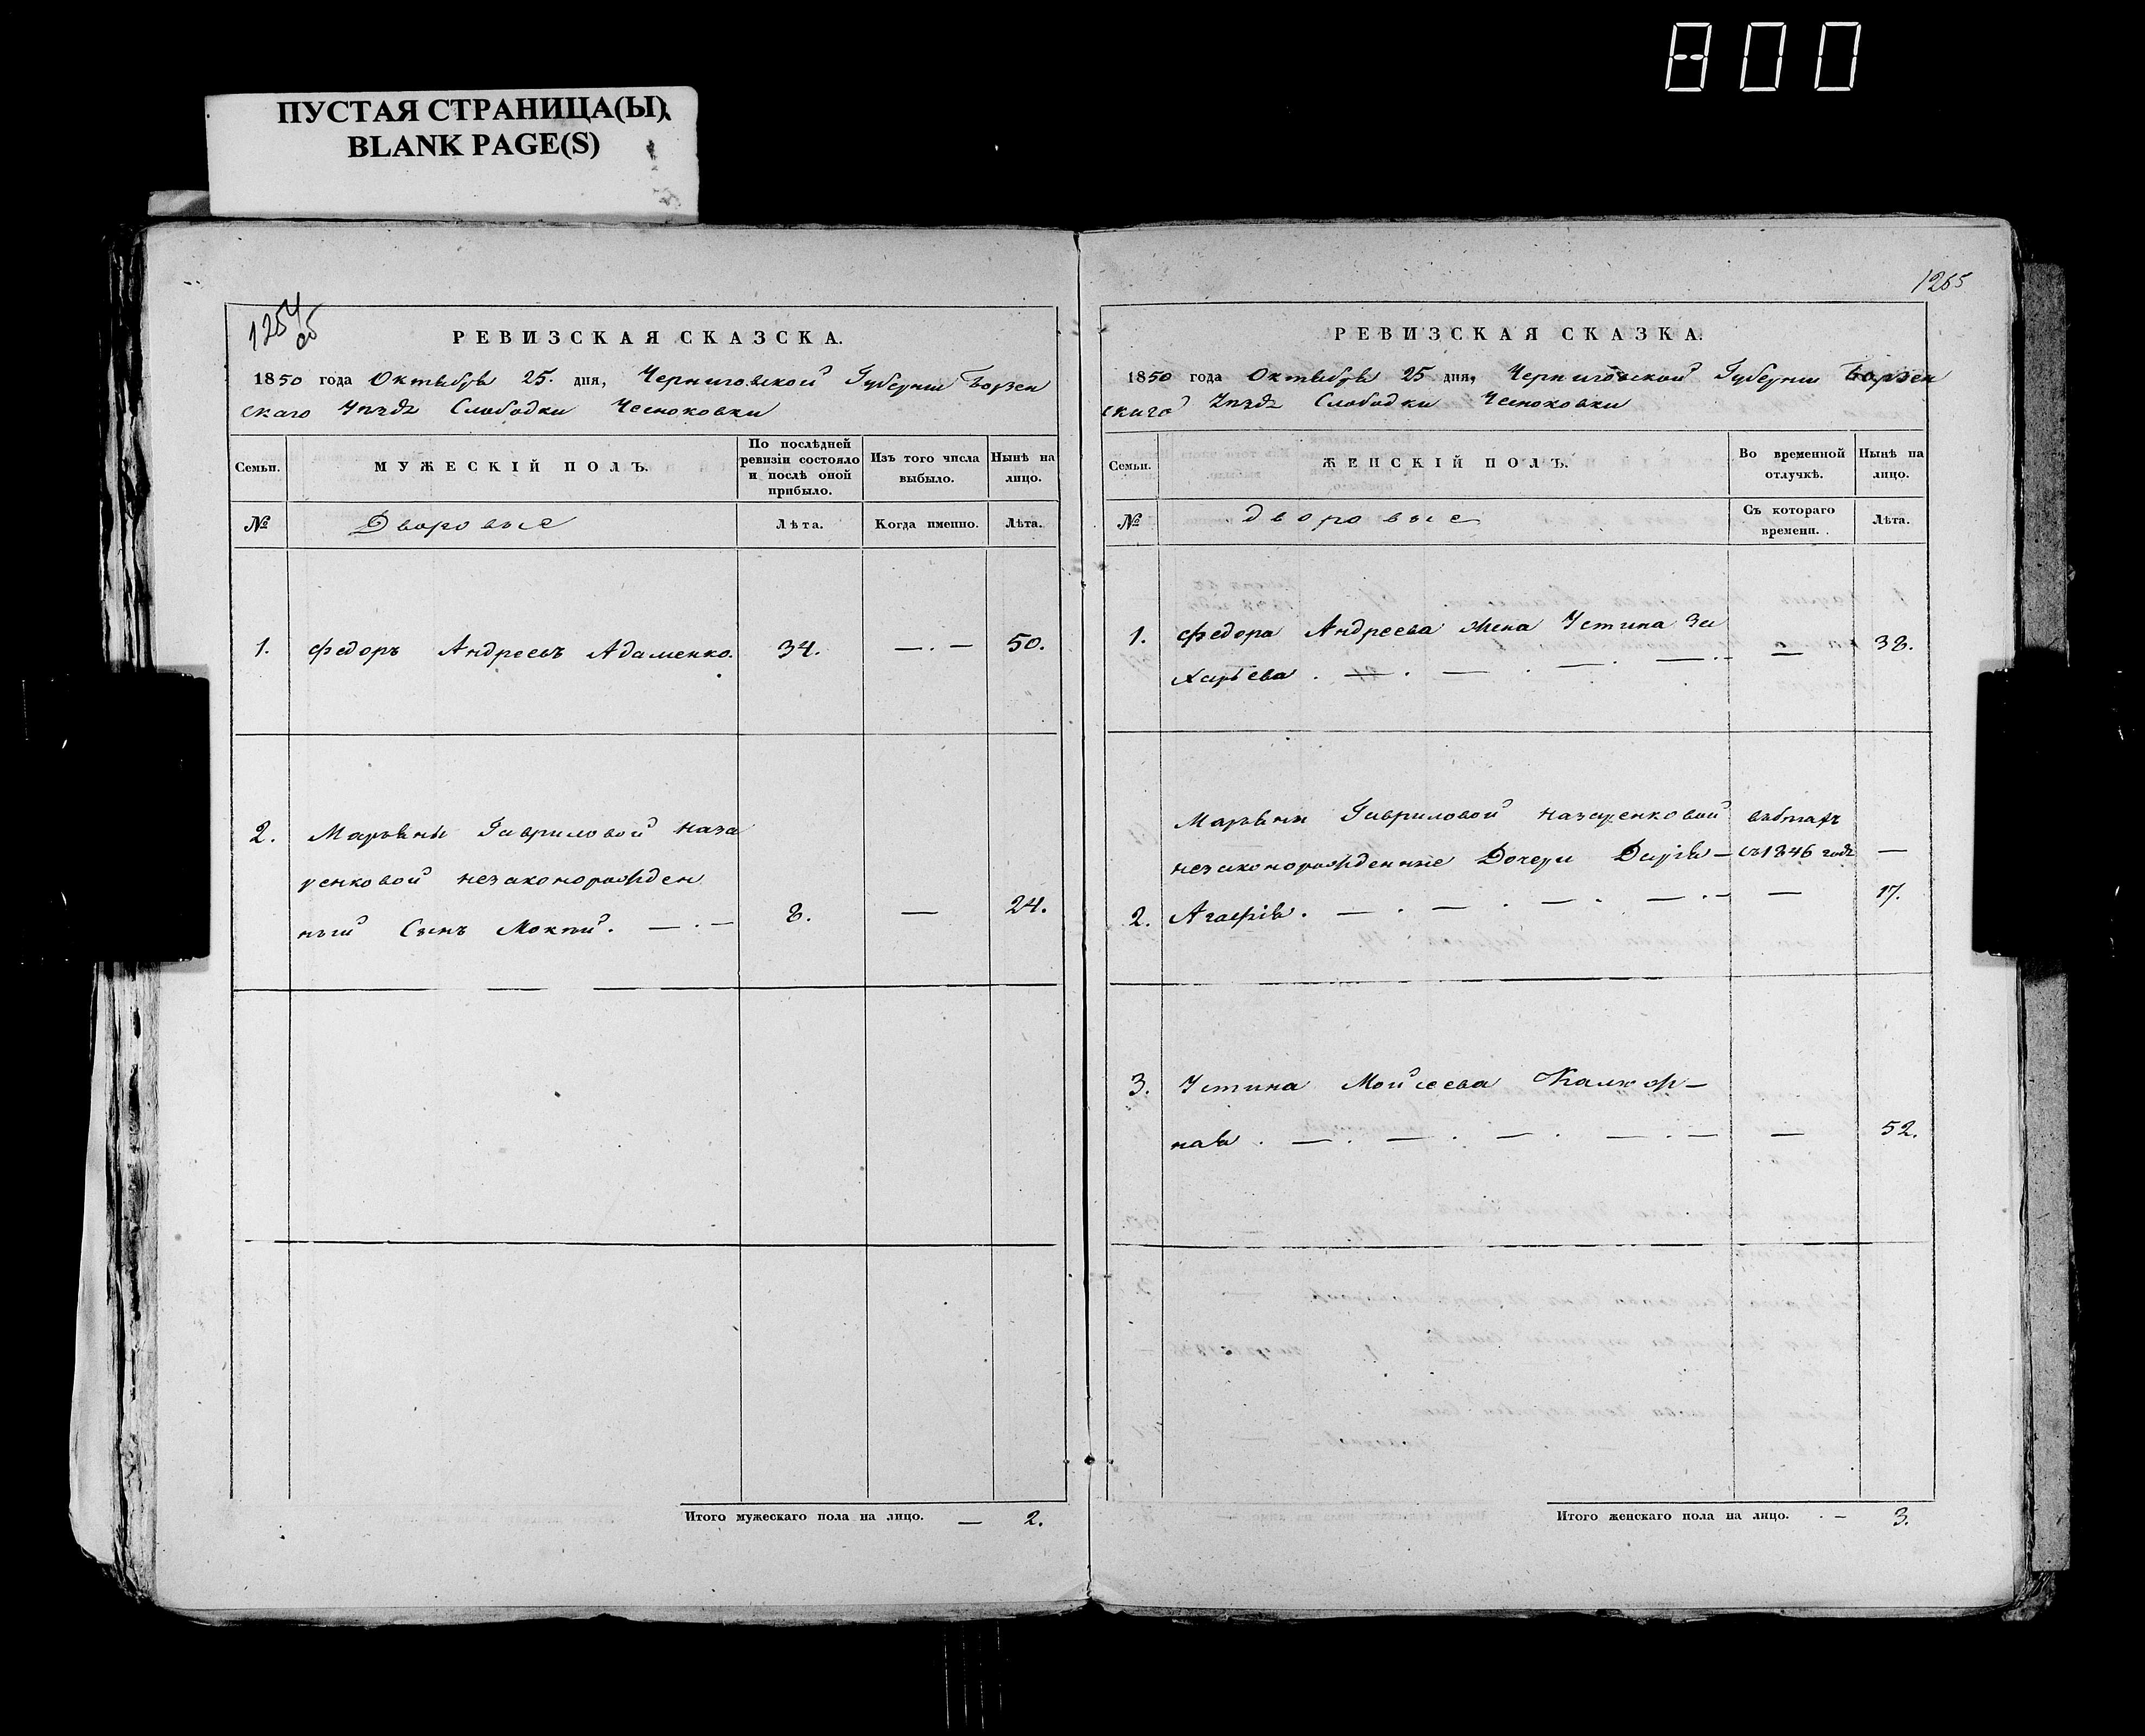 800
ПУСТАЯ СТРАНИЦА(Ы)
BLANK PAGE(S)
1254 об
РЕВИЗСКАЯ СКАЗСКА.
1850 года Октября 25. дня, Черниговской Губернии Борзен
скаго Уезда Слободки Чесноковки
Семьи. МУЖЕСКІЙ ПОЛЪ. По послѣдней ревизіи состояло и послѣ оной прибыло. Изъ того числа выбыло. Нынѣ на лицо.
№ Дворовые Лѣта. Когда именно. Лѣта.
1. Федоръ Андреевъ Адаменко. 34. — . — 50.
2. Марьяны Гавриловой Наза
ренковой незаконорожден
ный Сынъ Мокий. — . — 8. — 24.
Итого мужескаго пола на лицо. — 2.
1255
РЕВИЗСКАЯ СКАЗКА.
1850 года Октября 25 дня, Черниговской Губернии Борзен
скаго Уезда Слободки Чесноковки
Семьи. ЖЕНСКІЙ ПОЛЪ. Во временной отлучкѣ. Нынѣ на лицо.
№ Дворовые Съ котораго времени. Лѣта.
1. Федора Андреева жена Устина За
харьева . — . — . — . — . — — 38.
Марьяны Гавриловой Назаренковой въ бегахъ
незаконорожденные Дочери Дарья — съ 1846 года —
2. Агафія . — . — . — . — . — — 17.
3. Устина Мойсеева
ная . — . — . — . — . — — 52.
Итого женскаго пола на лицо. . — 3.